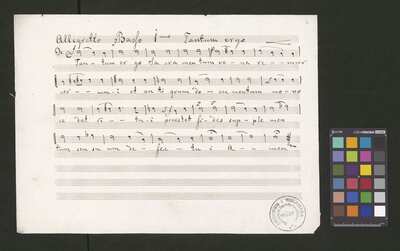 Allegretto Basso 1mo Tantum ergo
Tan - tum er go Sa cra men tum ve - ne re - mur
cer - nu - i et an ti quum do - cu mentum no - vo
ce dat ri - tu - i praestet fi - des sup - ple men
tum sen su um de - fec - tu i A - men